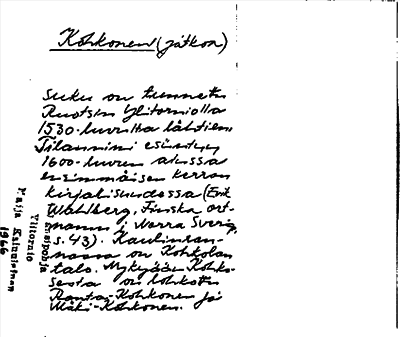 Kohkonen (jatkoa)
Suku on tunnettu
Ruotsin Ylitorniolla
1530-luvulta lähtien.
Tilannimi esiintyy
1600-luvun alussa
ensimmäisen kerran
kirjallisuudessa (Erik
Wahlberg, Finska ort-
namn i Norra Sverige,
s. 43). Kaulinran-
nassa on Kohkolan
talo. Nykyään Kohko-
sesta on lohkottu
Ranta-Kohkonen ja
Mäki-Kohkonen.
Ylitornio
Maija
1966